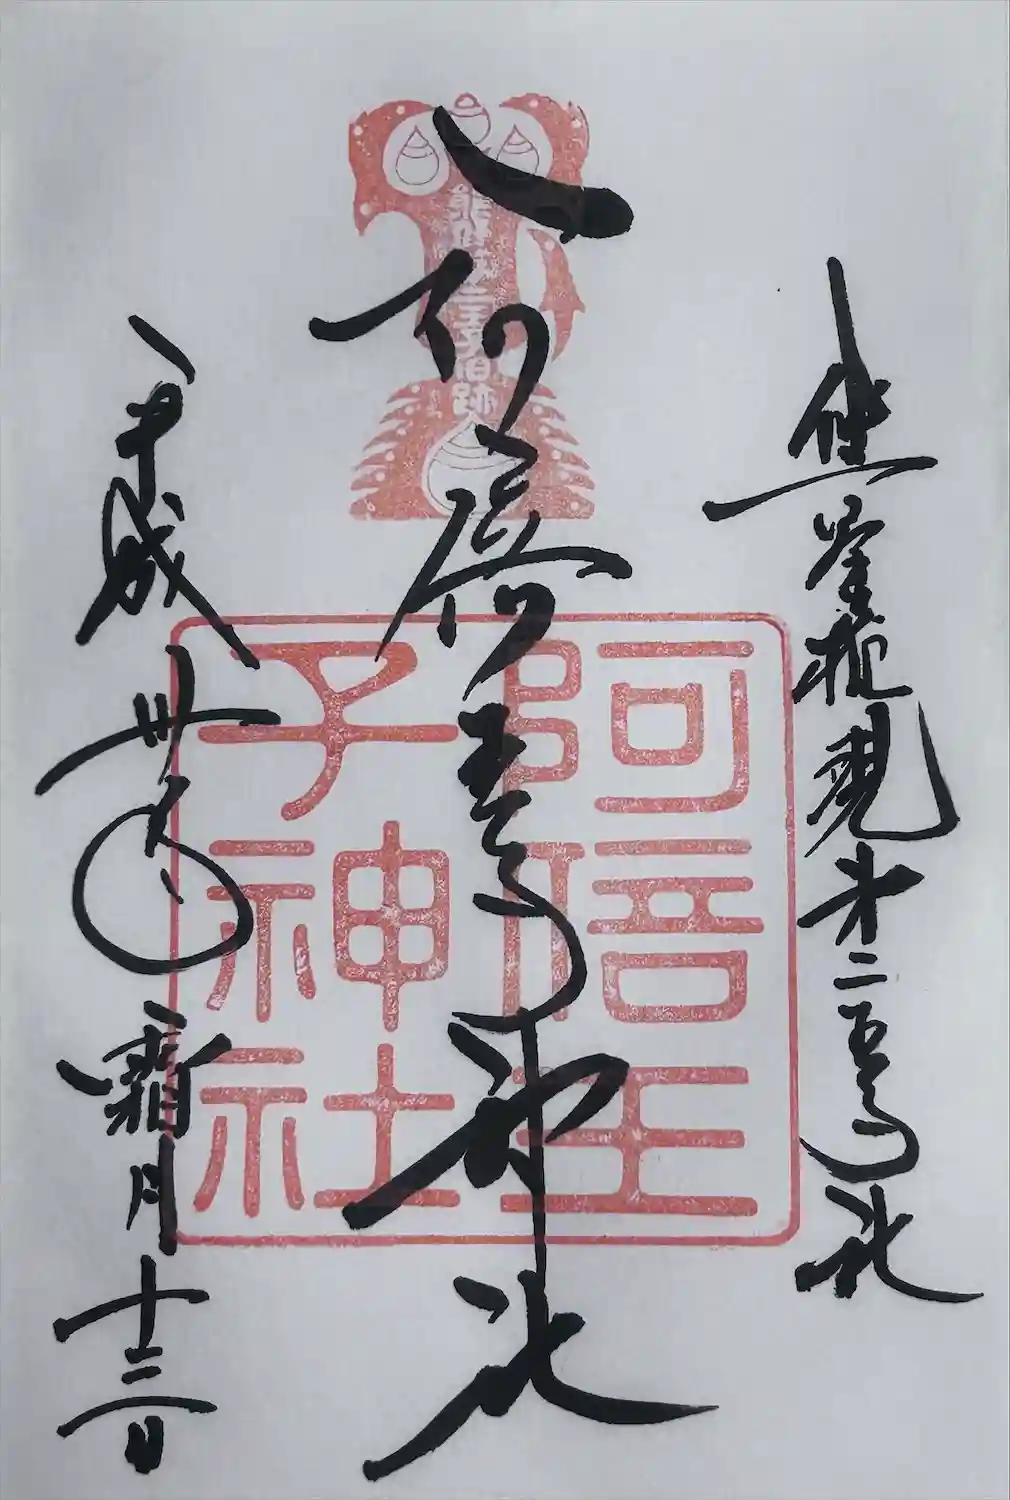 熊野権現第二王子社
阿倍王子神社
平成卅年霜月十三日
熊野第二王子旧跡
阿倍王子神社